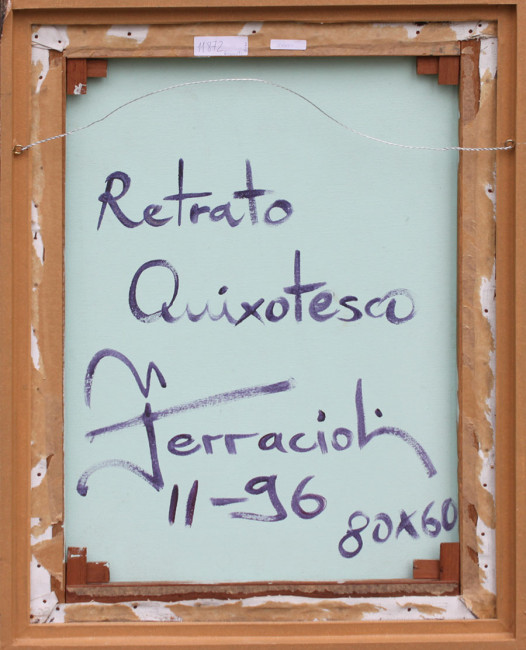 11872
Retrato
Quixotesco
Ferracioli
11-96
80X60